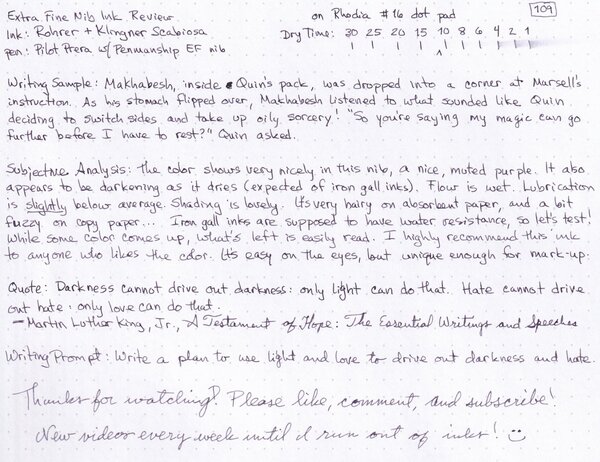 Extra Fine Nib Ink Review on Rhodia #16 dot pad 109
Ink: Rohrer + Klingner Scabiosa Dry Time: 30 25 20 15 10 8 6 4 2 1
pen: Pilot Prera w/ Penmanship EF nib
Writing Sample: Makhabesh, inside Quin's pack, was dropped into a corner at Marsell's
instruction. As his stomach flipped over, Makhabesh listened to what sounded like Quin
deciding to switch sides and take up oily sorcery! "So you're saying my magic can go
further before I have to rest?" Quin asked.
Subjective Analysis: The color shows very nicely in this nib, a nice, muted purple. It also
appears to be darkening as it dries (expected of iron gall inks). Flow is wet. Lubrication
is slightly below average. Shading is lovely. It's very hairy on absorbent paper, and a bit
fuzzy on copy paper... Iron gall inks are supposed to have water resistance, so let's test!
While some color comes up, what's left is easily read. I highly recommend this ink
to anyone who likes the color. It's easy on the eyes, but unique enough for mark-up.
Quote: Darkness cannot drive out darkness: only light can do that. Hate cannot drive
out hate: only love can do that.
—Martin Luther King, Jr., A Testament of Hope: The Essential Writings and Speeches
Writing Prompt: Write a plan to use light and love to drive out darkness and hate.
Thanks for watching! Please like, comment, and subscribe!
New videos every week until I run out of inks! ☺